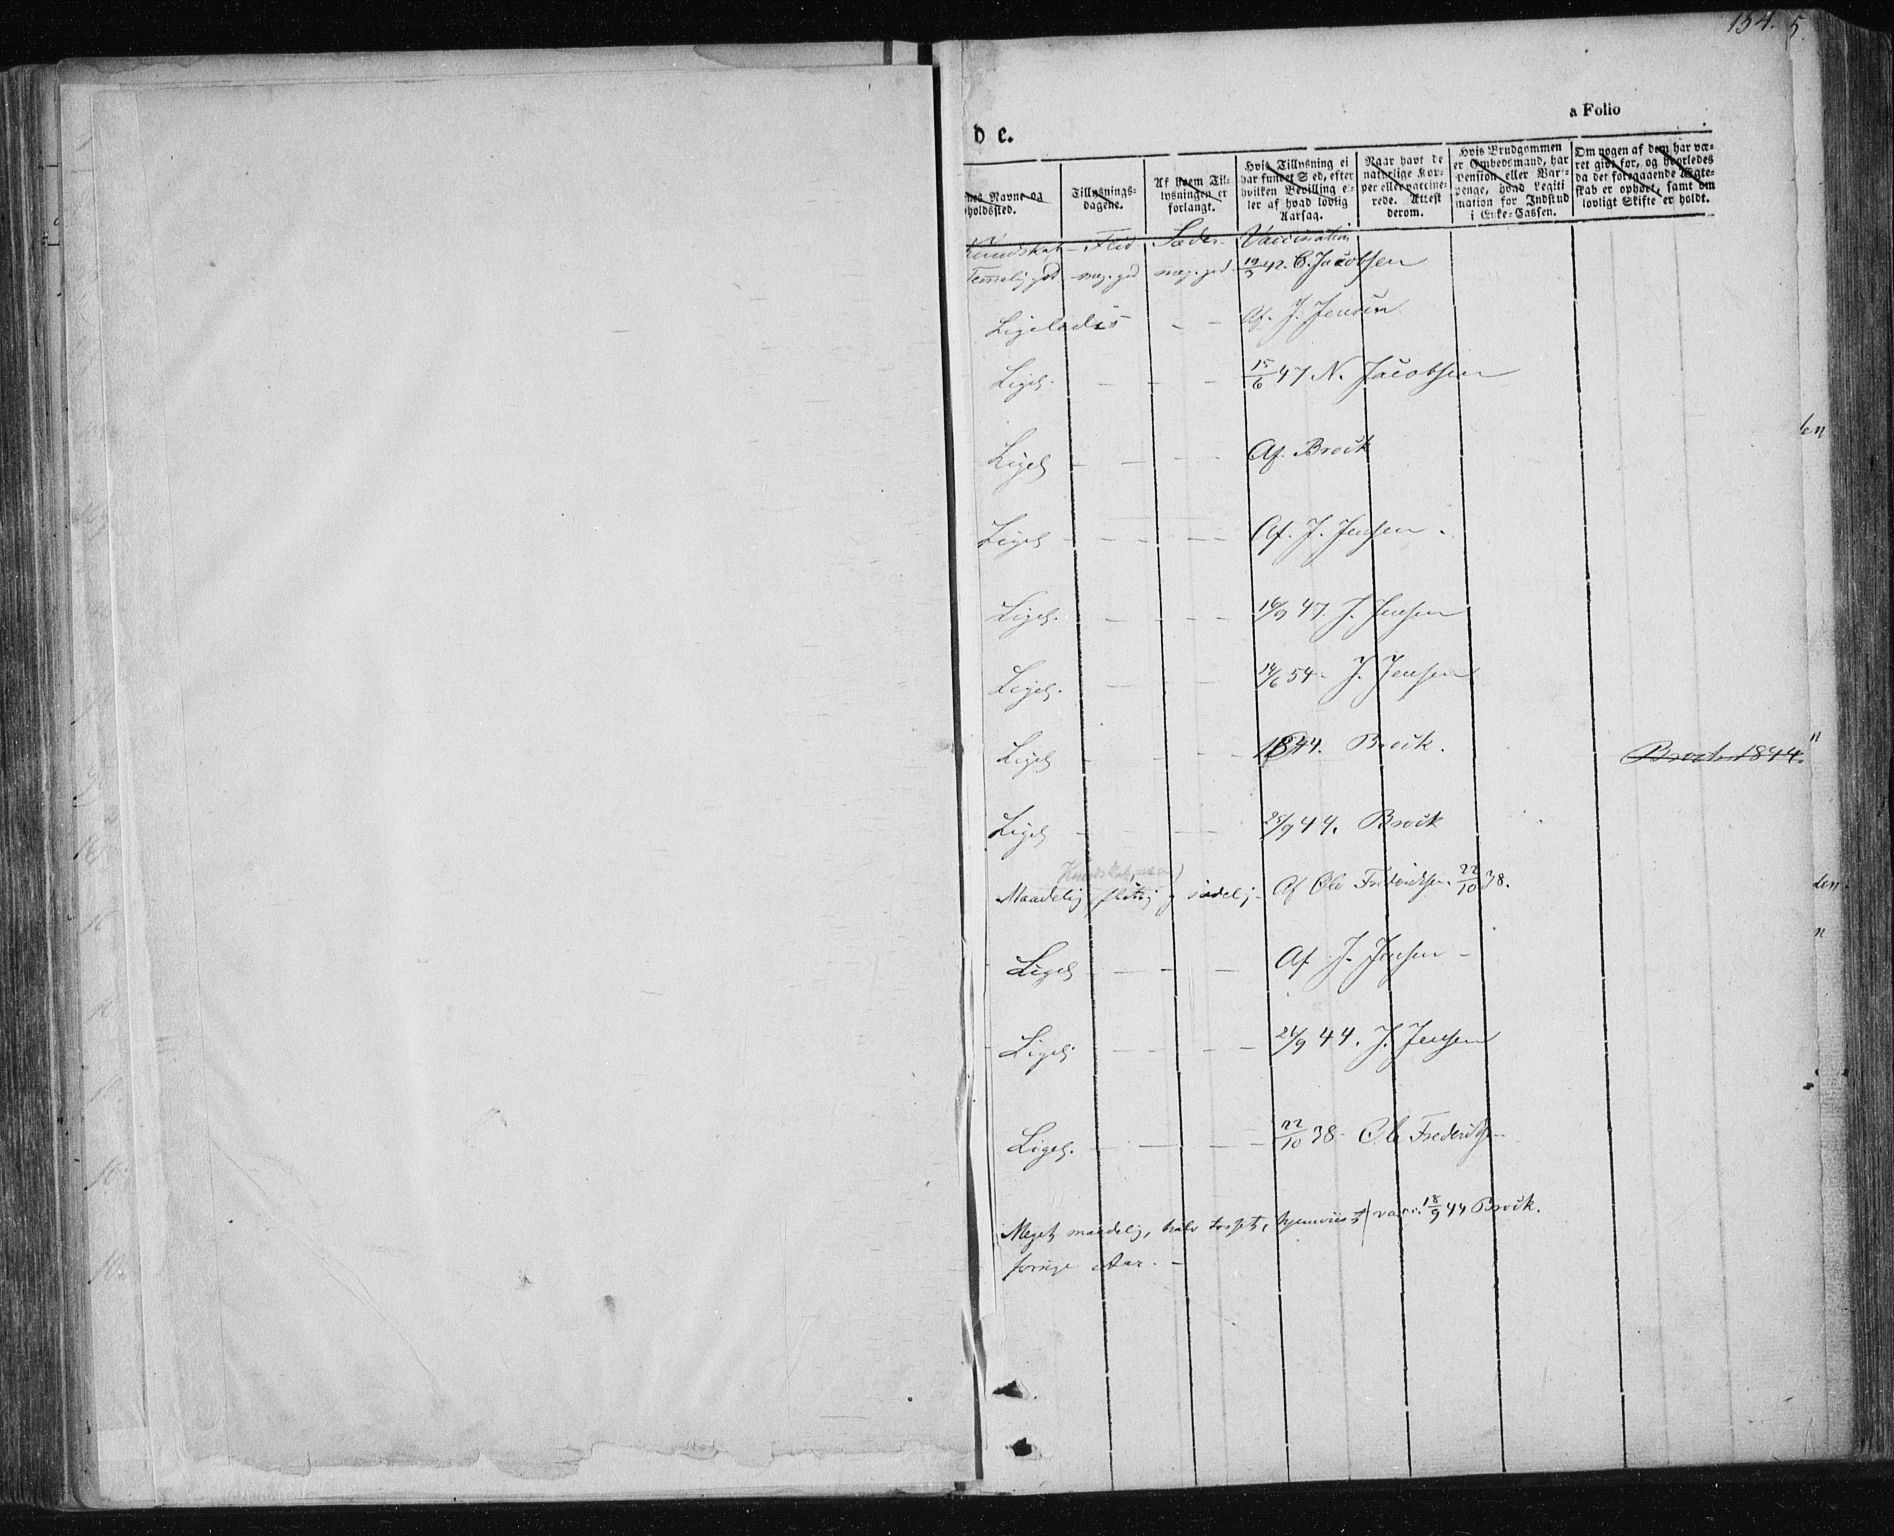 134. 5.
a Folio
de.
nes Navne og pholdssted.
Tillysnings-dagene.
Af hvem Til-lysningen er forlangt.
Hvis Tillysning ei har fundet Sted, efter hvilken Bevilling el-ler af hvad lovlig Aarsag.
Naar havt de naturlige Kop-per eller vaccine-rede. Attest derom.
Hvis Brudgommen er Embedsmand, har Pension eller Var-penge, hvad Legiti mation for Indskud i Enke-Cassen.
Om nogen af dem har væ-ret gift for, og hvorledes da det foregaaende Ægte-skab er ophørt, samt om lovligt Skifte er holdt.
Kundskab - Flid Sæder - Vaccination
Temelig god meg. god meg. god 19/3 42. C. Jacobsen
Ligeledes - - Af. J. Jensen
Ligel. - - - 15/6 47 N. Jacobsen
Ligel - - - - Af. Brock
Ligel - - - - Af. J. Jensen -
Ligel. - - - 16/9 47. J. Jensen
Ligel. - - - 14/6 54 - J. Jensen
Ligel - - - 1844. Brock.
Brock 1844.
Ligel - - - 25/9 44. Brock
Kundskab,
Maadelig flittig sædelig - Af Ole Frederiksen 22/10 38.
Ligel - - - - Af J. Jensen -
Ligel - - - - 24/9 44. J. Jensen
Ligel. - - - - 22/10 38 - Ole Frederiksen
Meget maadelig, halv tosset, hjemviist vacc. 18/9 44 Brock.
forrige Aar. -